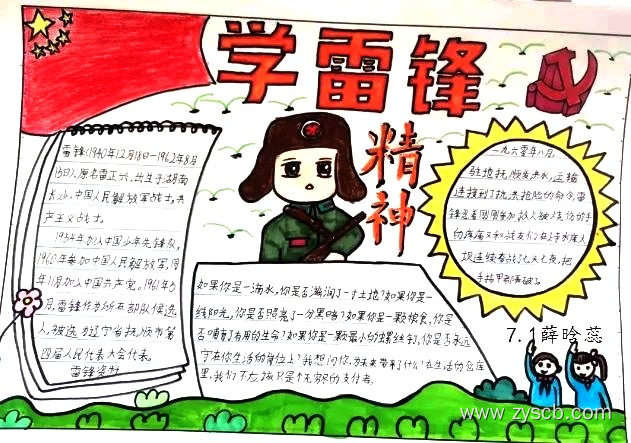 学雷锋
精神
雷锋(1940年12月18日—1962年8月
15日),原名雷正兴,出生于湖南
长沙,中国人民解放军战士,共
产主义战士。
1954年加入中国少年先锋队,
1960年参加中国人民解放军,同
年11月加入中国共产党。1961年5
月,雷锋作为所在部队候选
人,被选为辽宁省抚顺市第
四届人民代表大会代表。
雷锋资料
一九六零年八月,
驻地抚顺发洪水,运输
连接到了抗洪抢险的命令,雷
锋忍着刚刚参加救火被烧伤的手
的疼痛又和战友们在上寺水库大
坝连续奋战了七天七夜,
如果你是一滴水,你是否滋润了一寸土地?如果你是一
线阳光,你是否照亮了一分黑暗?如果你是一颗粮食,你是
否哺育了有用的生命?如果你是一颗最小的螺丝钉,你是否永远
守在你生活的岗位上?我想问你,为未来带来了什么?在生活的仓库
里,我们不应该只是个无穷尽的支付者。
7.1薛晗蕊
www.zyscb.com